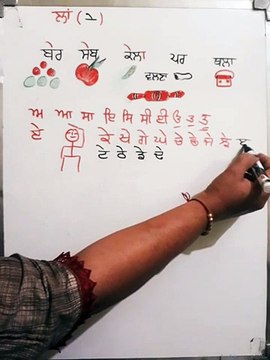 ਲਾਂ (੨)
ਬੇਰ ਸੇਬ ਕੇਲਾ ਪਰ ਥਲਾ
ਵਲਣ
ਅ ਆ ਸਾ ਇ ਸਿ ਸੀ ਈ ਉ ਤੁ ਤੂ
ਏ ਕੇ ਖੇ ਗੇ ਘੇ ਚੇ ਛੇ ਜੇ ਝੇ
ਟੇ ਠੇ ਡੇ ਦੇ